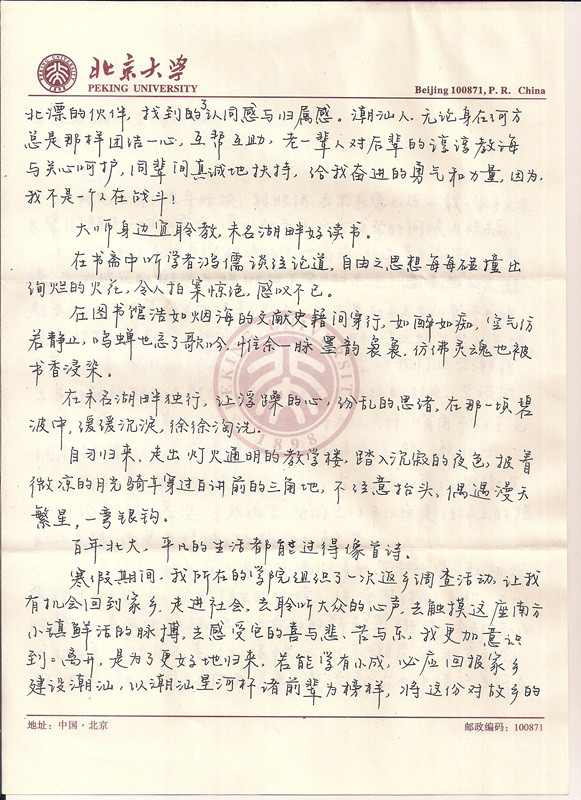 北京大学
PEKING UNIVERSITY
Beijing 100871, P. R. China
北漂的伙伴，找到的了认同感与归属感。潮汕人，无论身在何方
总是那样团结一心，互帮互助，老一辈人对后辈的谆谆教诲
与关心呵护，同辈间真诚地扶持，给我奋进的勇气和力量，因为，
我不是一个人在战斗！
大师身边宜聆教，未名湖畔好读书。
在书斋中听学者鸿儒谈经论道，自由之思想每每碰撞出
绚烂的火花，令人拍案惊绝，感叹不已。
在图书馆浩如烟海的文献史籍间穿行，如醉如痴，空气仿
若静止，鸣蝉也忘了歌吟，惟余一脉墨韵袅袅，仿佛灵魂也被
书香浸染。
在未名湖畔独行，让浮躁的心，纷乱的思绪，在那一顷碧
波中，缓缓沉淀，徐徐淘洗。
自习归来，走出灯火通明的教学楼，踏入沉寂的夜色，披着
微凉的月光骑车穿过百讲前的三角地，不经意抬头，偶遇漫天
繁星，一弯银钩。
百年北大，平凡的生活都能过得像首诗。
寒假期间，我所在的学院组织了一次返乡调查活动，让我
有机会回到家乡，走进社会，去聆听大众的心声，去触摸这座南方
小镇鲜活的脉搏，去感受它的喜与悲、苦与乐，我更加意识
到：离开，是为了更好地归来，若能学有小成，必应回报家乡
建设潮汕，以潮汕星河杯诸前辈为榜样，将这份对故乡的
PEKING UNIVERSITY
1898
地址：中国·北京
邮政编码：100871